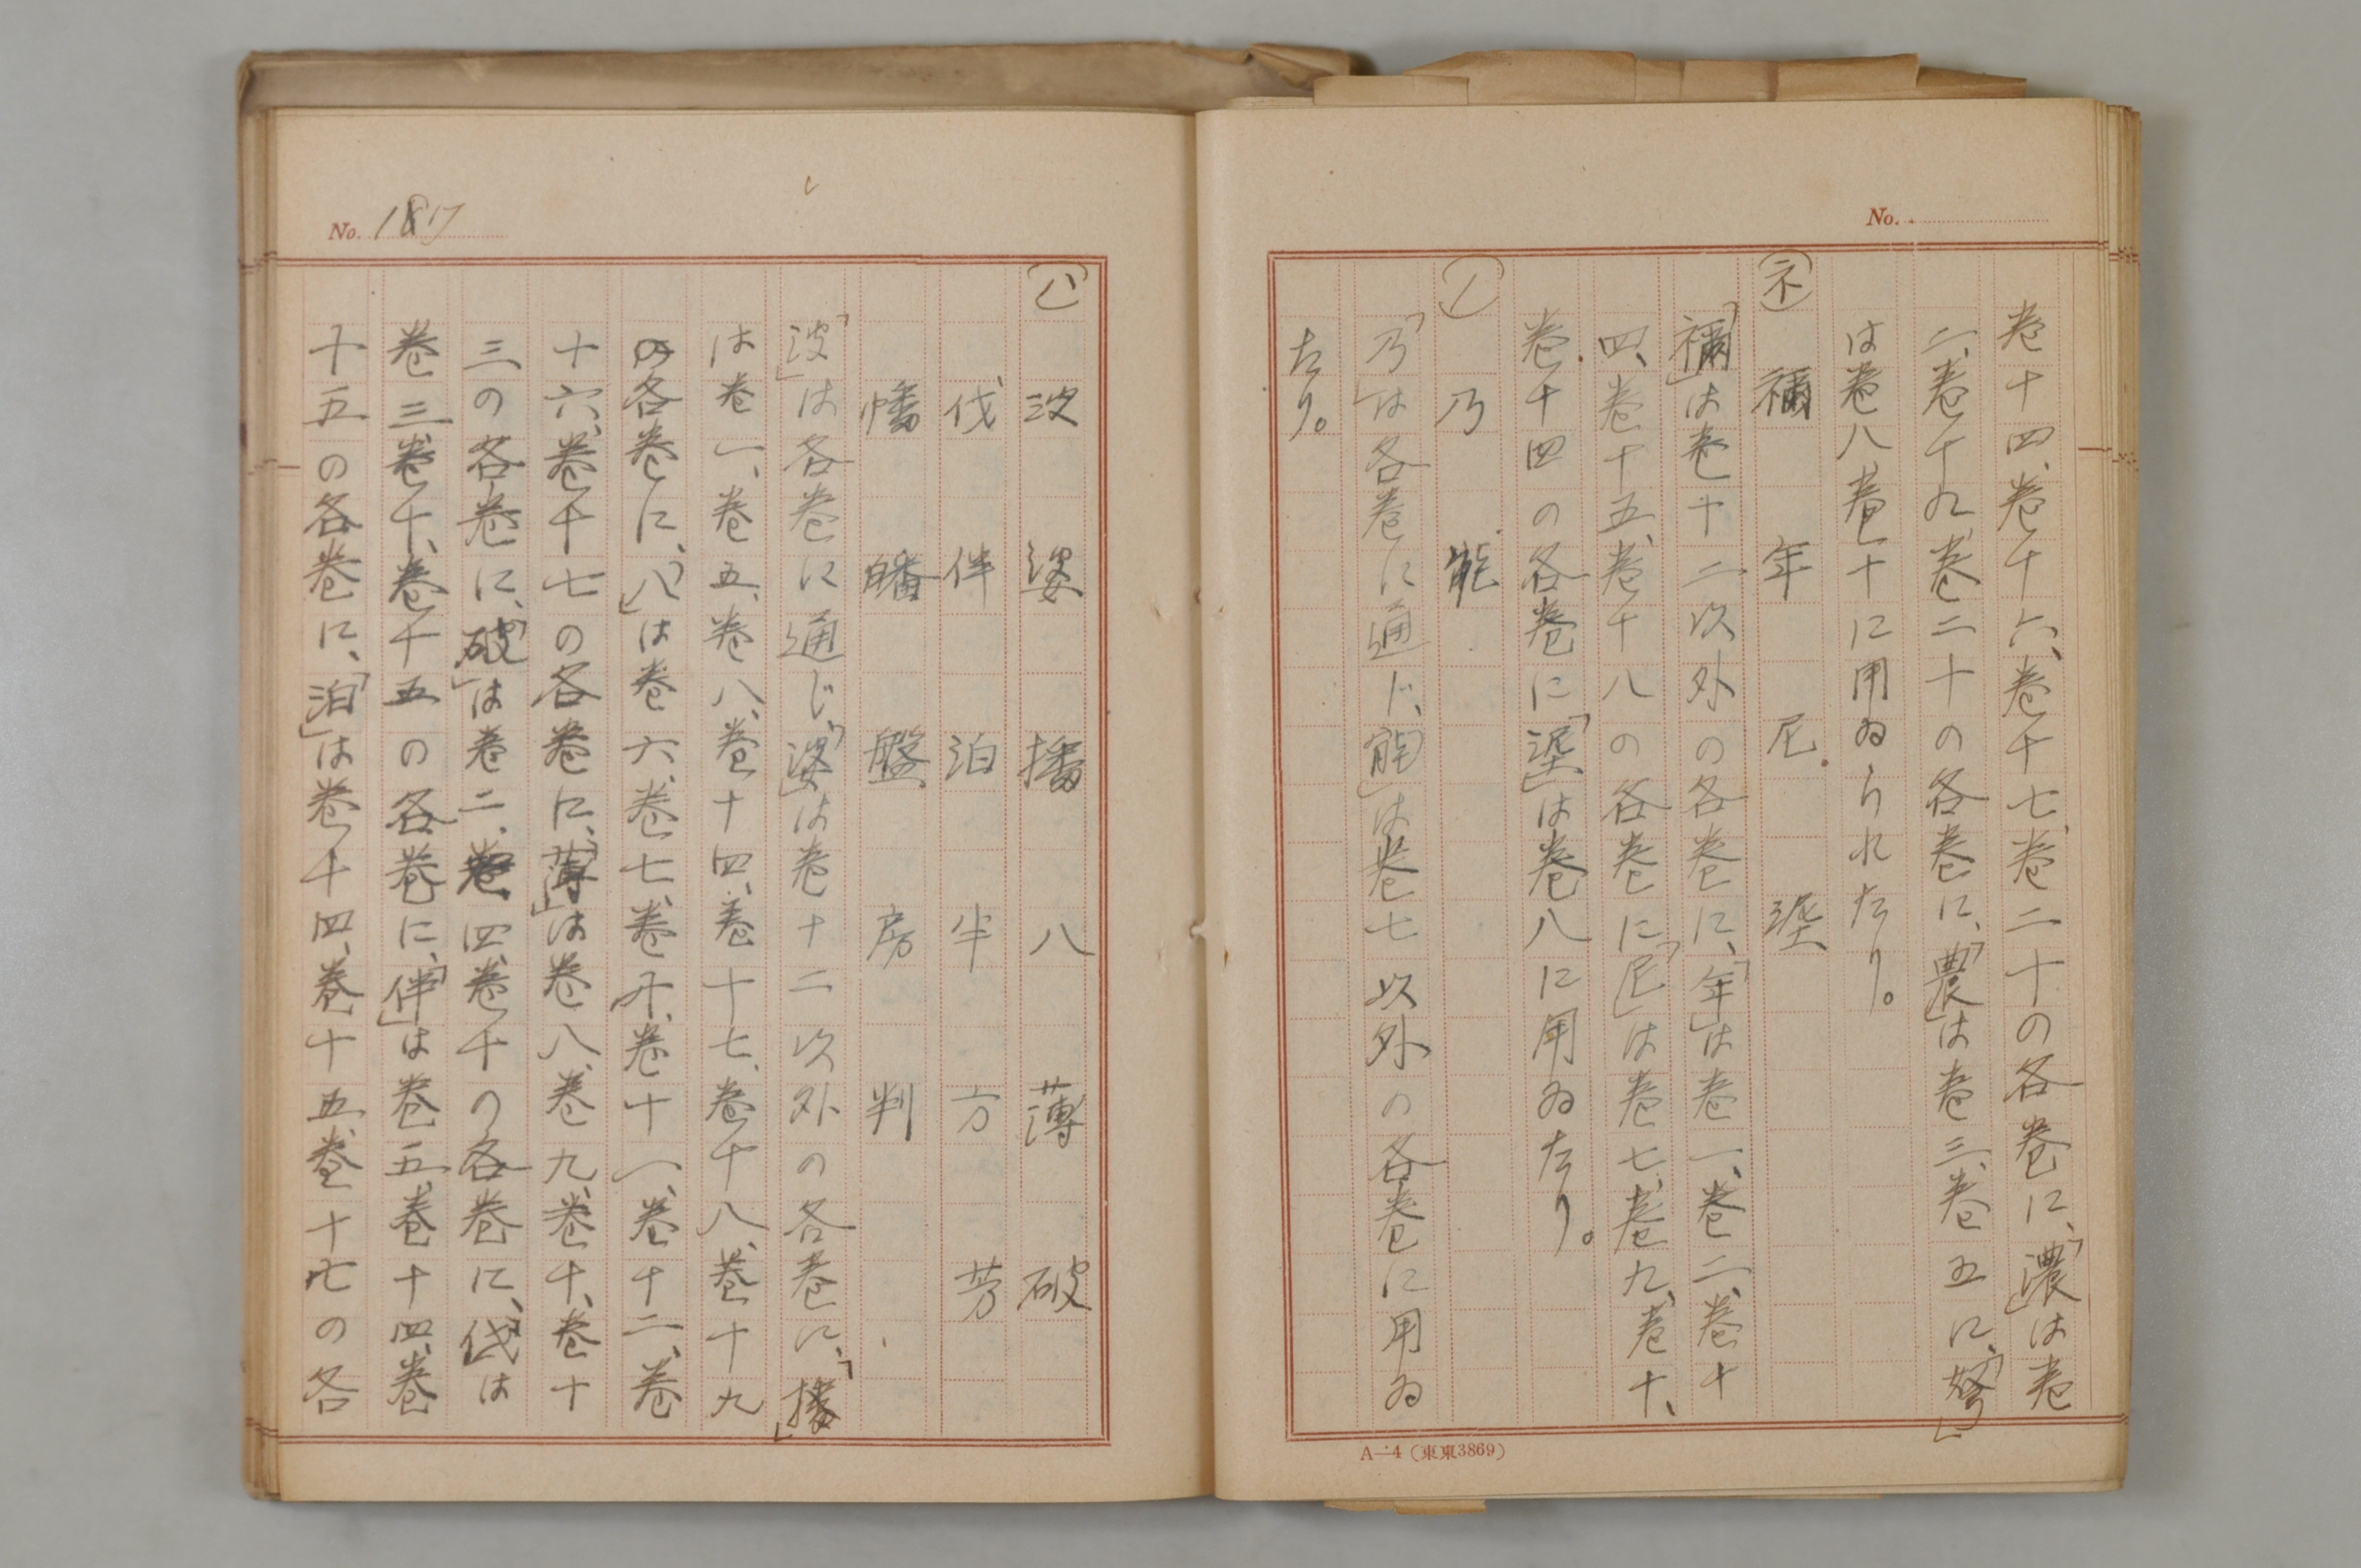 No.
巻十四、巻十六、巻十七、巻二十の各巻に、「濃」は巻
二、巻十九、巻二十の各巻に、「農」は巻三、巻五に、「努」
は巻八、巻十に用ゐられたり。
(ネ) 禰 年 尼 埿
「禰」は巻十二以外の各巻に、「年」は巻一、巻二、巻十
四、巻十五、巻十八の各巻に「尼」は巻七、巻九、巻十、
巻十四の各巻に「埿」は巻八に用ゐたり。
(ノ) 乃 能
「乃」は各巻に通じ、「能」は巻七以外の各巻に用ゐ
たり。
A-4(東東3869)
No. 1817
(ハ) 波 婆 播 八 薄 破
伐 伴 泊 半 方 芳
幡 皤 盤 房 判
「波」は各巻に通じ、「婆」は巻十二以外の各巻に、「播」
は巻一、巻五、巻八、巻十四、巻十七、巻十八、巻十九
の各巻に、「八」は巻六、巻七、巻九、巻十一、巻十二、巻
十六、巻十七の各巻に、「薄」は巻八、巻九、巻十、巻十
三の各巻に、「破」は巻二、巻四、巻十の各巻に、「伐」は
巻三、巻十、巻十五の各巻に、「伴」は巻五、巻十四、巻
十五の各巻に、「泊」は巻十四、巻十五、巻十七の各